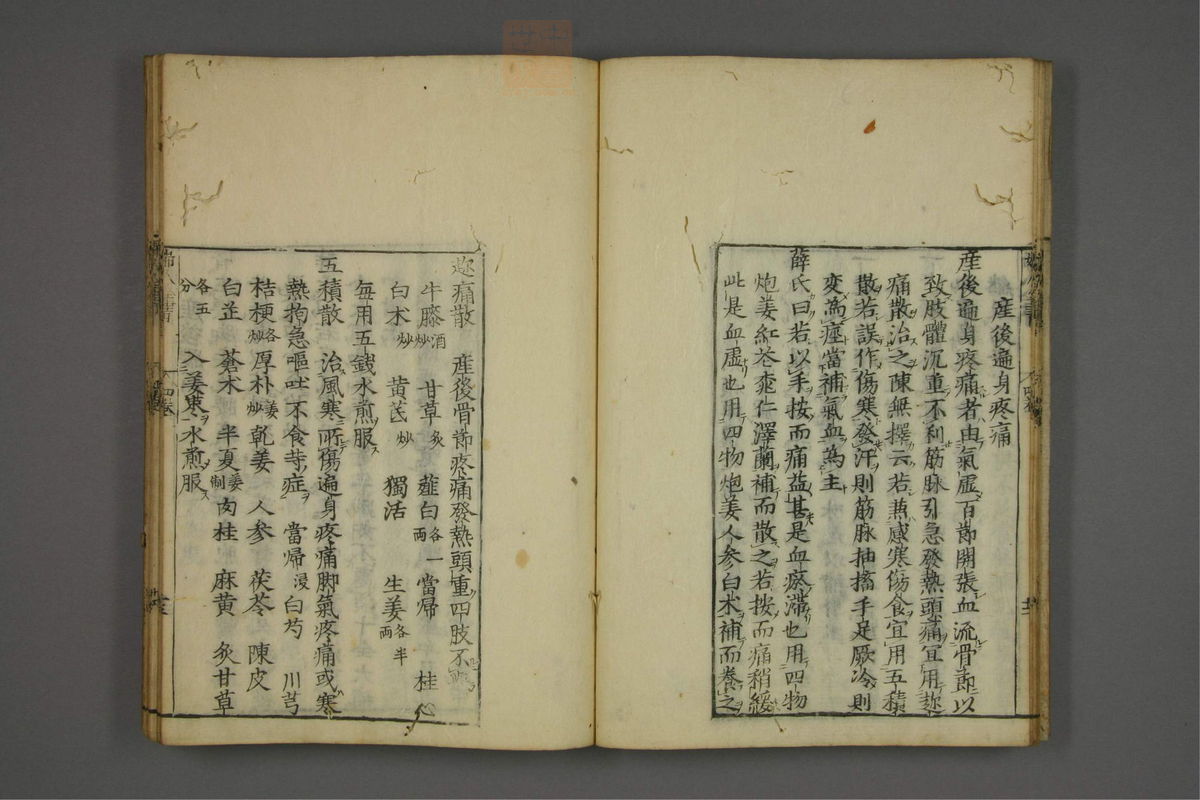 產後遍身疼痛
產後遍身疼痛者由氣虛百節開張血流骨節以
致肢體沉重不利筋脉引急發熱頭痛宜用趂
痛散治之陳無擇云若兼感寒傷食宜用五積
散若誤作傷寒發汗則筋脉抽搐手足厥冷則
變為痙當補氣血為主
薛氏曰若以手按而痛益甚是血瘀滯也用四物
炮姜紅花桃仁澤蘭補而散之若按而痛稍緩
此是血虛也用四物炮姜人參白术補而養之
趂痛散 產後骨節疼痛發熱頭重四肢不
牛膝酒炒 甘草炙 薤白各一兩 當帰 桂心
白术炒 黃芪炒 獨活 生姜各半兩
每用五錢水煎服
五積散 治風寒所傷遍身疼痛脚氣疼痛或寒
熱拘急嘔吐不食等症 當帰浸 白芍 川芎
桔梗各炒 厚朴姜炒 乾姜 人参 茯苓 陳皮
白芷 蒼术 半夏姜制 肉桂 麻黃 炙甘草
各五分 入姜棗水煎服